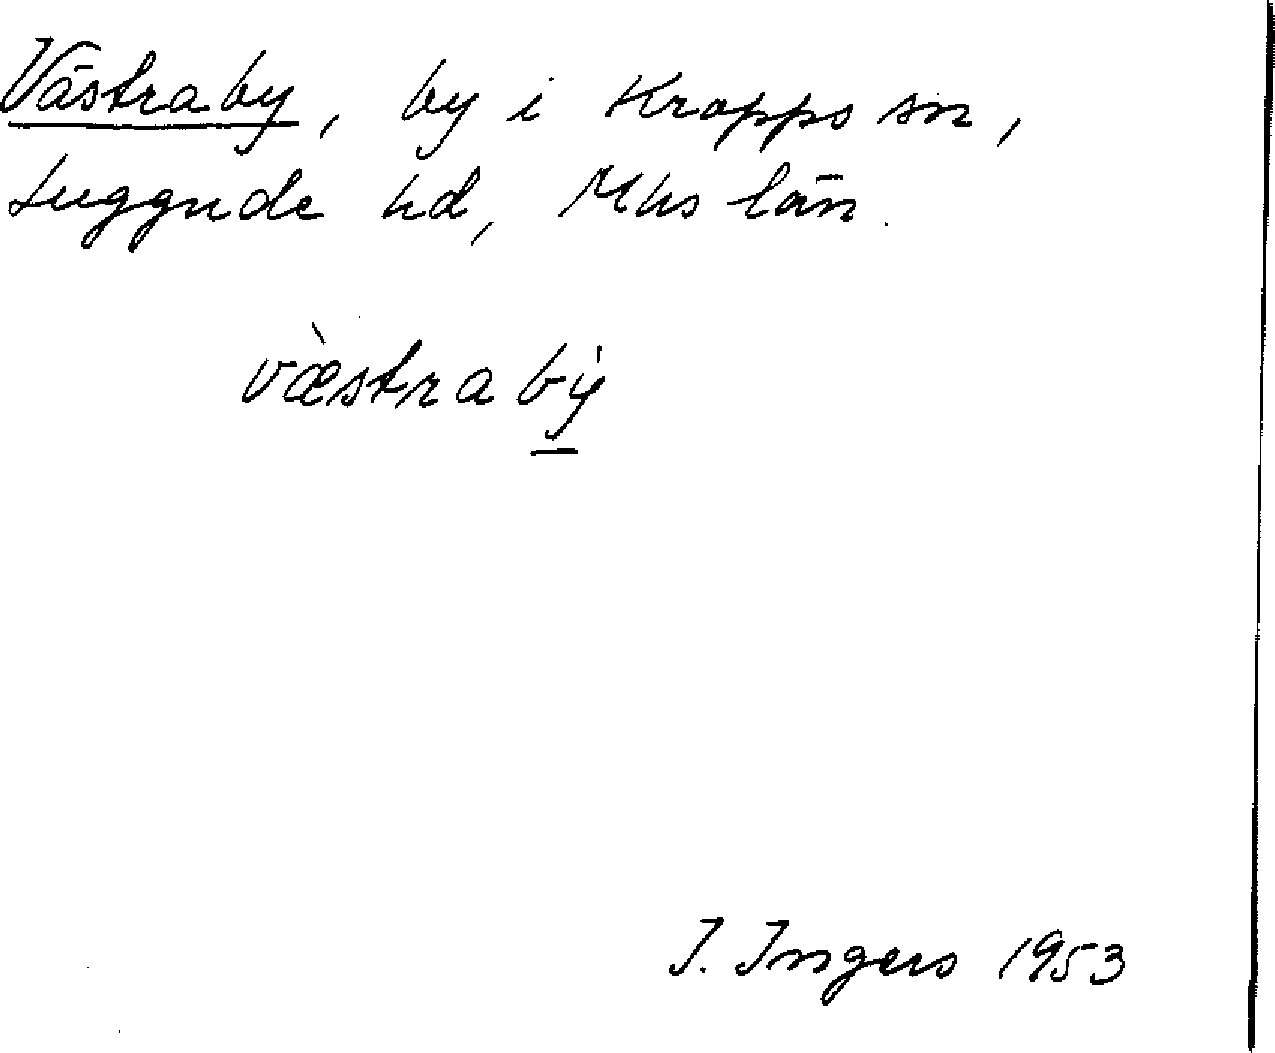 Västraby, by i Kropps sn,
Luggude hd, Mhs län.
væ̀straby̍
I. Ingers 1953